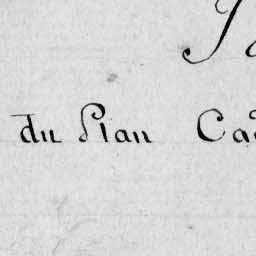 du Plan Cad